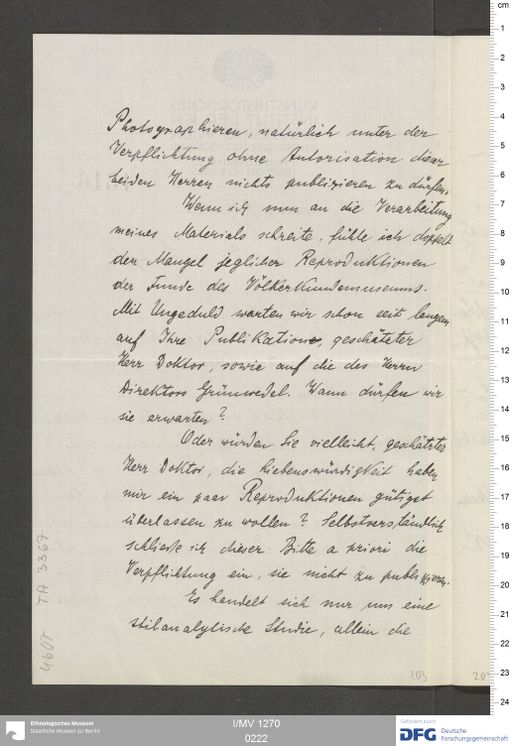 Photographieren, natürlich unter der
Verpflichtung ohne Autorisation dieser
beiden Herren nichts publizieren zu dürfen.
Wenn ich nun an die Verarbeitung
meines Materials schreite, fühle ich doppelt
den Mangel jeglicher Reproduktionen
der Funde des Völkerkundemuseums.
Mit Ungeduld warten wir schon seit langem
auf Ihre Publikation, geschätzter
Herr Doktor, sowie auf die des Herrn
Direktors Grünwedel. Wann dürfen wir
sie erwarten?
Oder würden Sie vielleicht, geschätzter
Herr Doktor, die Liebenswürdigkeit haben
mir ein paar Reproduktionen gütigst
überlassen zu wollen? Selbstverständlich
schließe ich dieser Bitte a priori die
Verpflichtung ein, sie nicht zu publizieren.
Es handelt sich nur um eine
stilanalytische Studie, allein die
4607 TA 3367
203
Ethnologisches Museum
Staatliche Museen zu Berlin
I/MV 1270
0222
Gefördert durch
DFG Deutsche
Forschungsgemeinschaft
cm
1
2
3
4
5
6
7
8
9
10
11
12
13
14
15
16
17
18
19
20
21
22
23
24